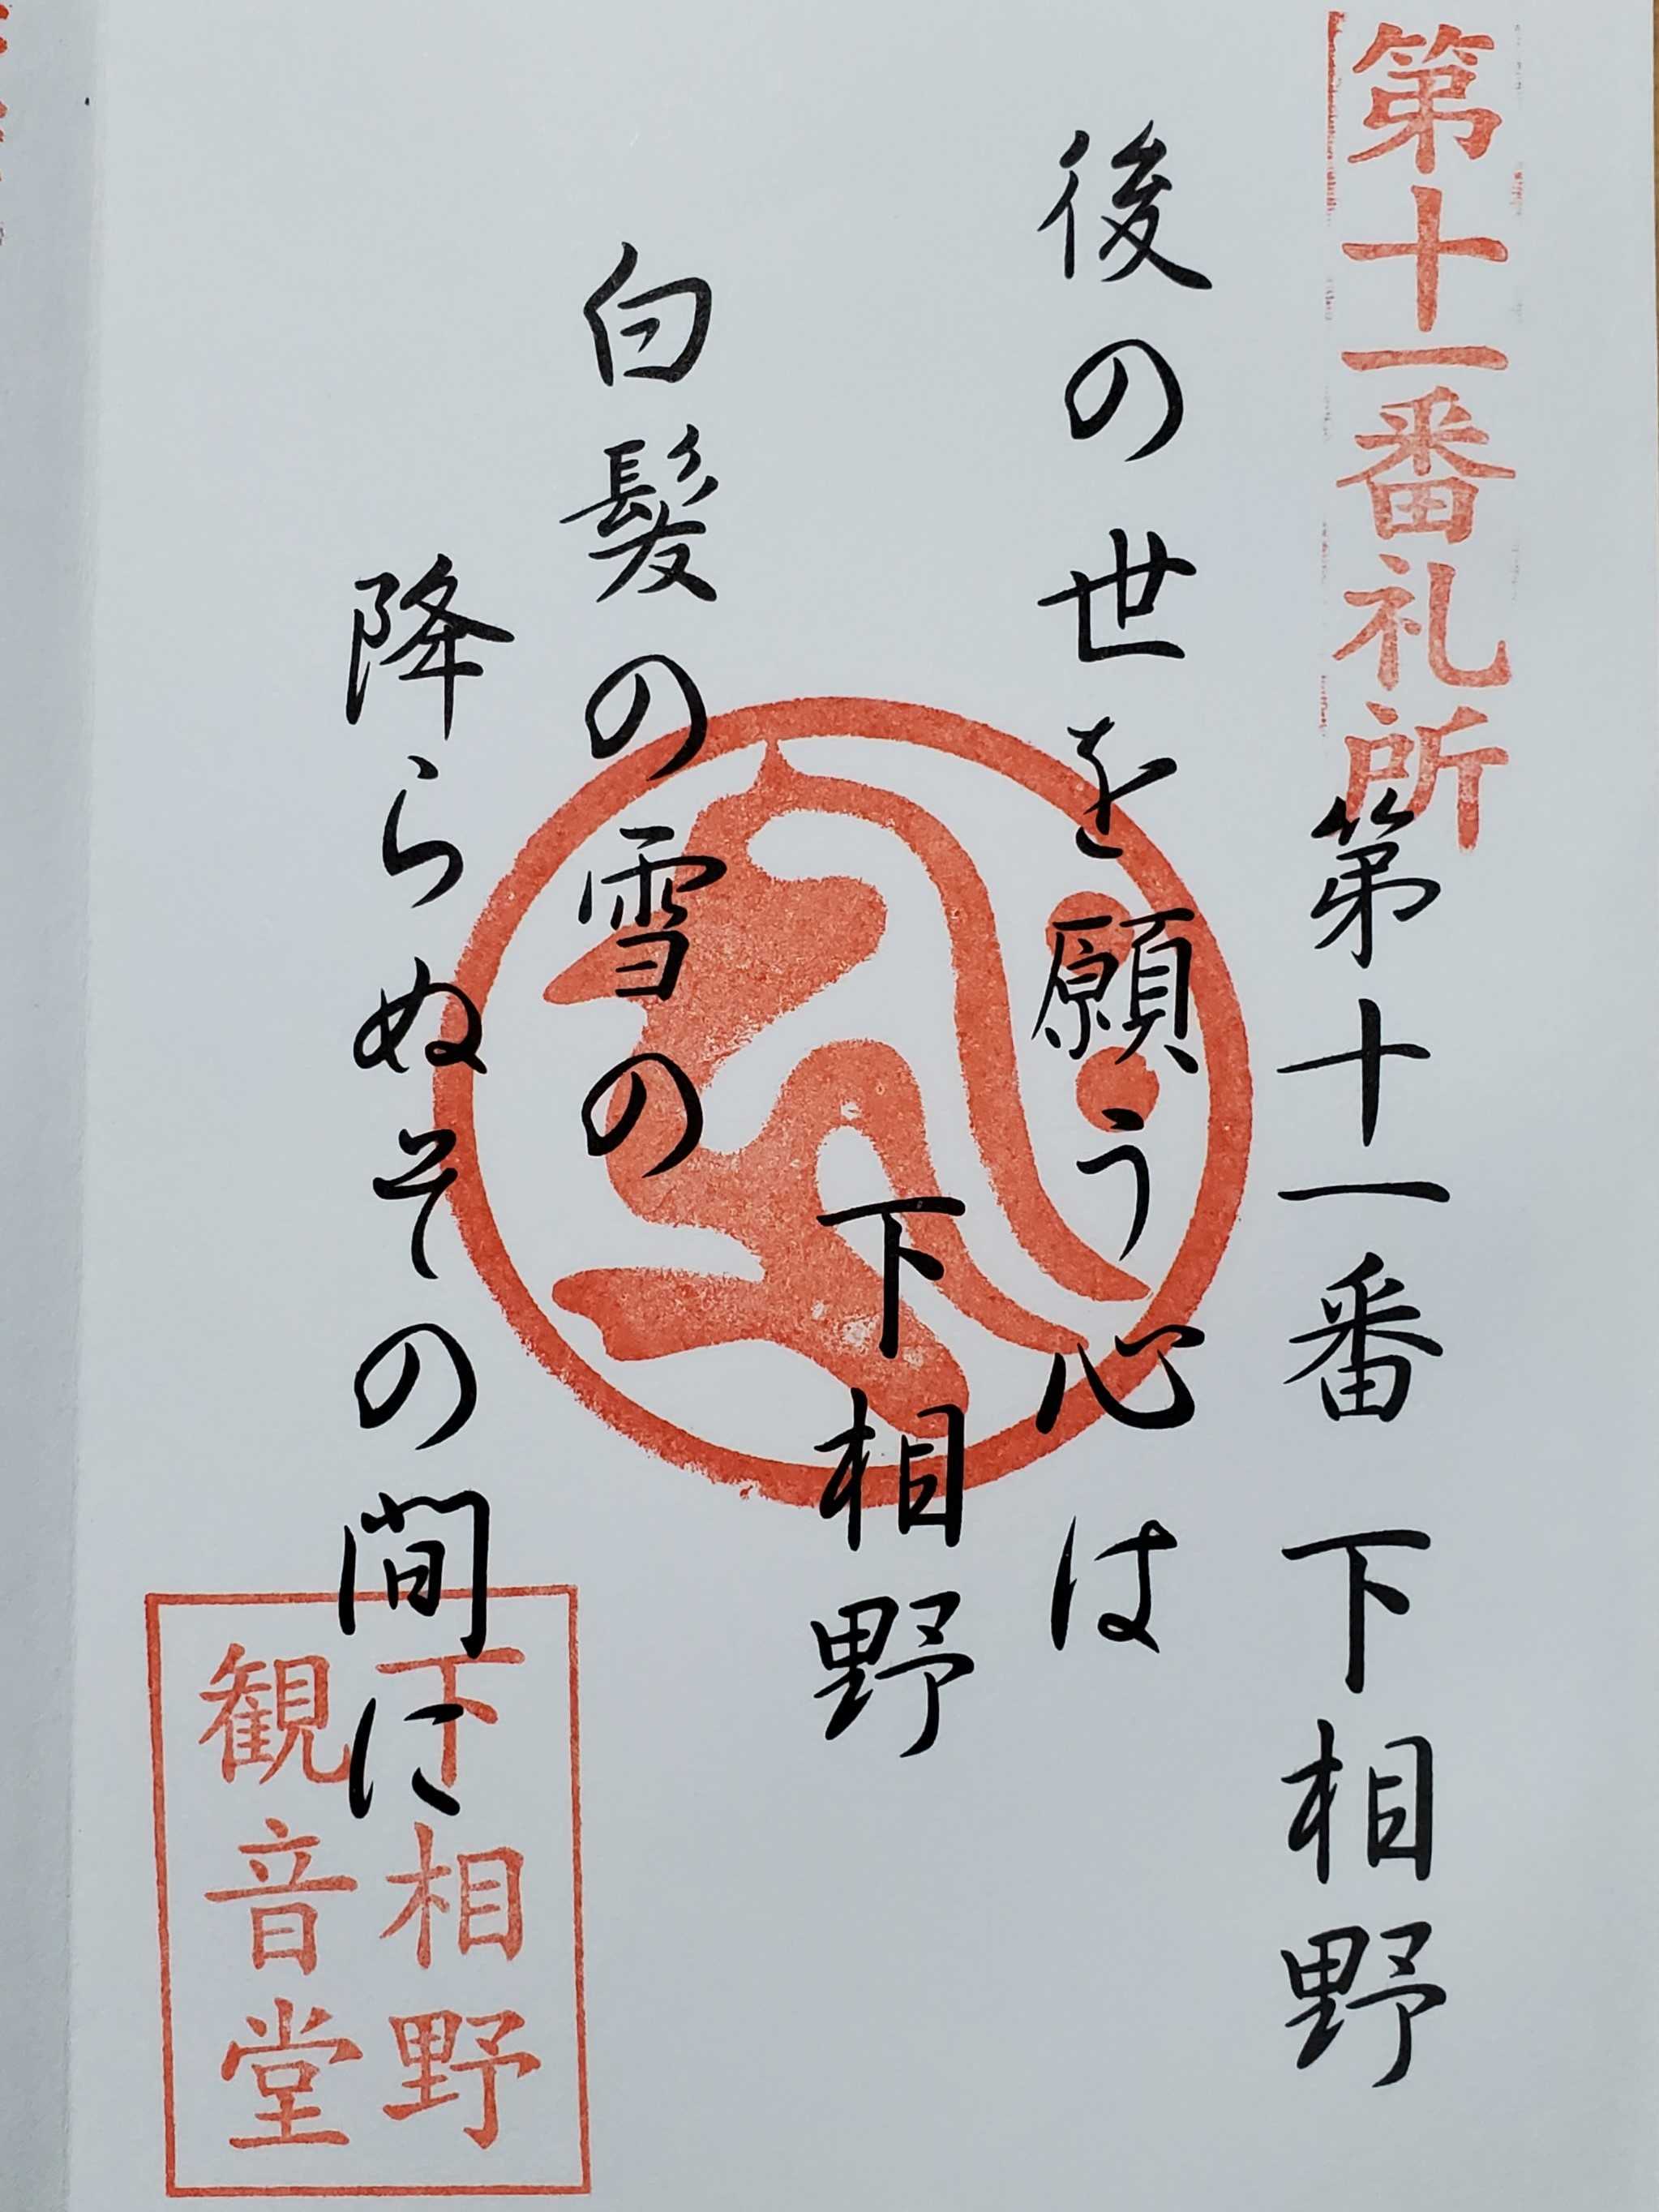 第十一番礼所
第十一番 下相野
後の世を願う心は
下相野
白髪の雪の
降らぬその間に
下相野
観音堂